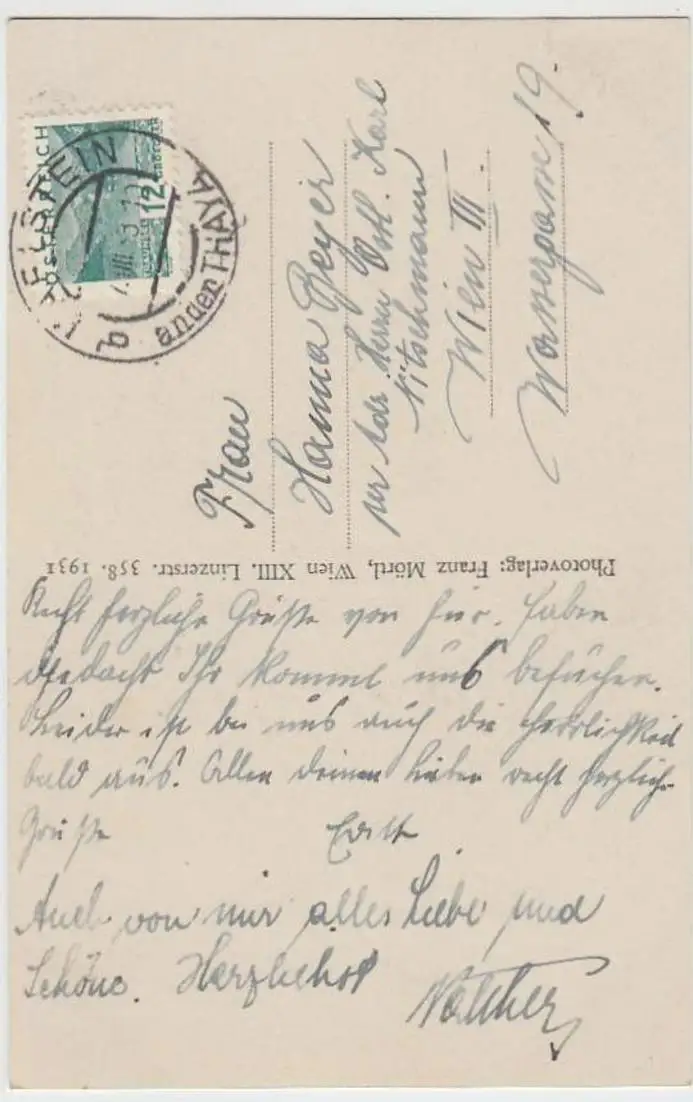 ÖSTERREICH
12
GROSCHEN
an der THAYA
b
Frau
Hanna Beyer
per Adr. Herrn Karl
Nitschmann
Wien III.
19.
Photoverlag: Franz Mörtl, Wien XIII. Linzerstr. 358. 1931
Recht herzliche Grüße von hier. Haben
gedacht Ihr kommt uns besuchen.
Leider ist bei uns auch die Herrlichkeit
bald aus. Allen deinen Lieben recht herzliche
Grüße
Auch von mir alles Liebe und
Schöne. Herzlichst